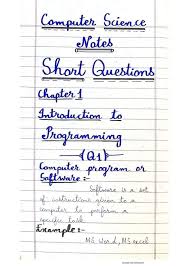 Computer Science
Notes
Short Questions
Chapter 1
Introduction to
Programming
Q1
Computer program or
Software:-
Software is a set
of instructions given to a
computer to perform a
specific task.
Example:-
MS Word, MS excel